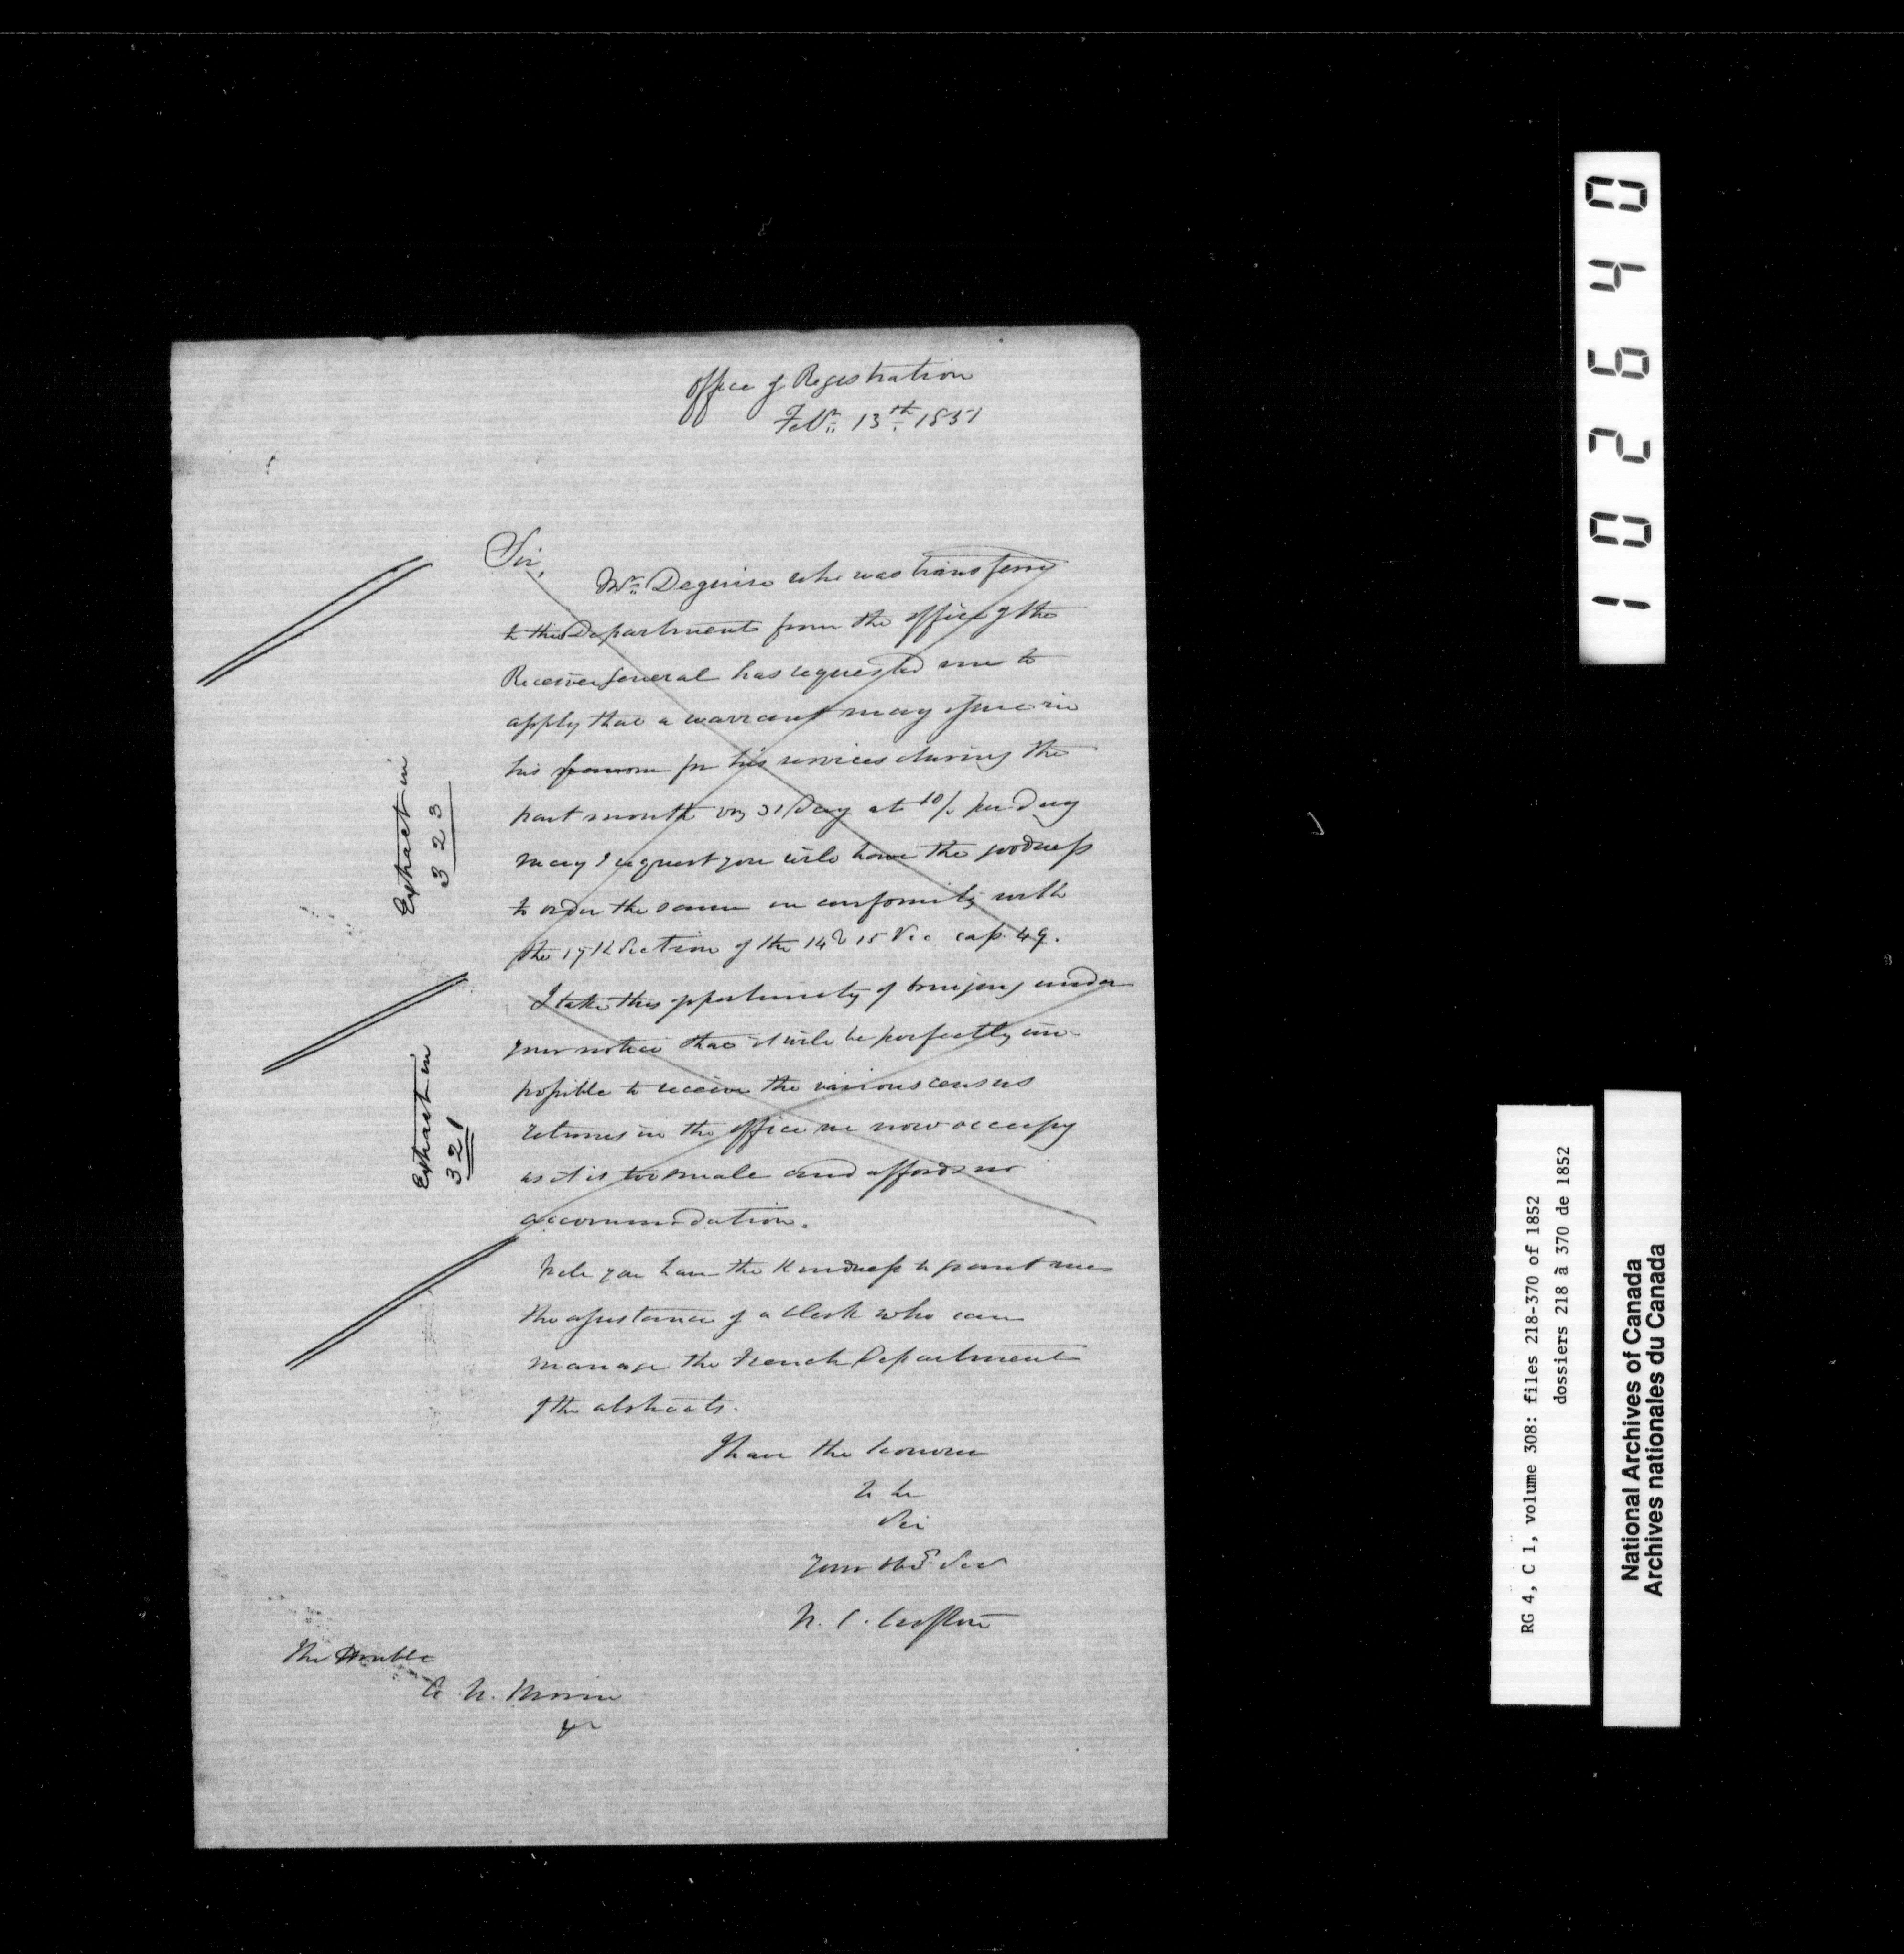 Office of Registration
Feby. 13th. 1851
Sir,
Mr. Deguire who was transferred
to this Department from the office of the
Receiver General has requested me to
apply that a warrant may issue in
his for his services during the
past month viz 31 Day at 10/ per day
may I request you will have the goodness
to order the same in conformity with
the 17th Section of the 14 & 15 Vic cap. 49.
I take this opportunity of bringing under
your notice that it will be perfectly im-
possible to receive the various census
returns in the office we now occupy
as it is too small and affords no
accommodation.
Will you have the kindness to grant me
the assistance of a Clerk who can
manage the French Department
of the abstracts.
I have the honour
to be
Sir
Your Obt Serv
W. C. Crofton
The Honble
A. N. Morin
&c
Extract in
323
Extract in
321
102640
RG 4, C 1, volume 308: files 218-370 of 1852
dossiers 218 à 370 de 1852
National Archives of Canada
Archives nationales du Canada